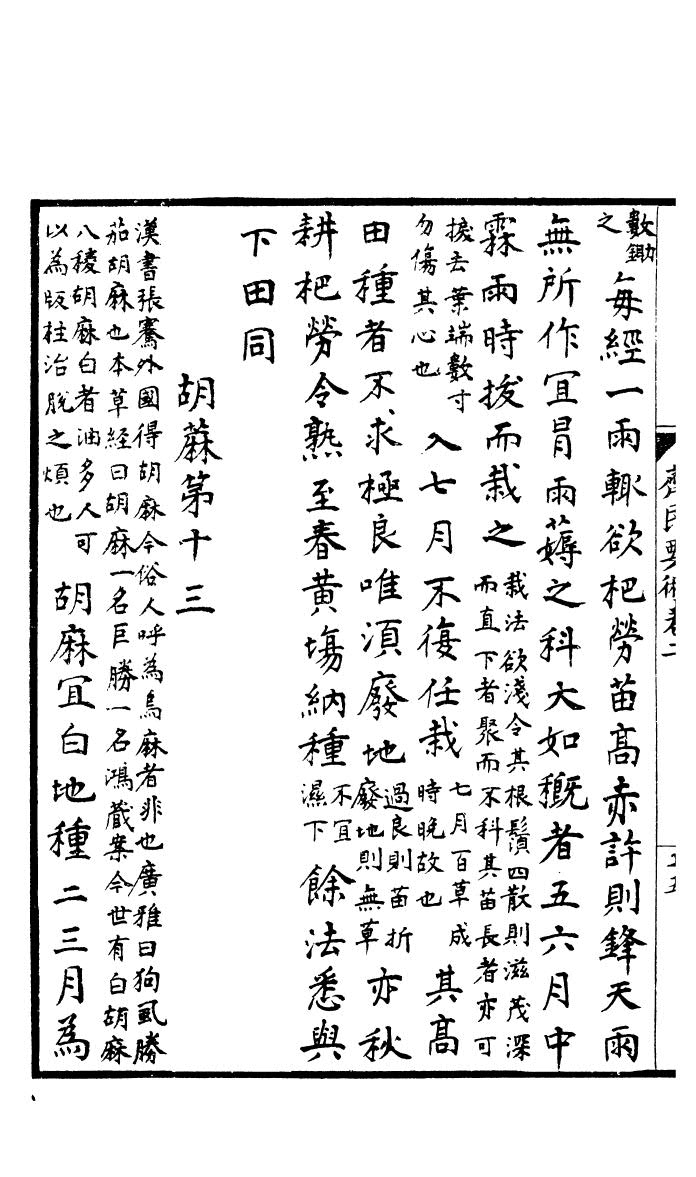 齊民要術卷二
數鋤
之
每經一雨輒欲杷勞苗高赤許則鋒天雨
無所作冝冒雨薅之科大如穊者五六月中
霖雨時拔而栽之
栽法欲淺令其根鬚四散則滋茂深
而直下者聚而不科其苗長者亦可
捩去葉端數寸
勿傷其心也
入七月不復任栽
七月百草成
時晚故也
其高
田種者不求極良唯須廢地
過良則苗折
廢地則無草
亦秋
耕杷勞令熟至春黃塲納種
不宜
濕下
餘法悉與
下田同
胡麻第十三
漢書張騫外國得胡麻今俗人呼為烏麻者非也廣雅曰狗虱勝
茄胡麻也本草經曰胡麻一名巨勝一名鴻藏案今世有白胡麻
八稜胡麻白者油多人可
以為飯柱治脫之煩也
胡麻冝白地種二三月為